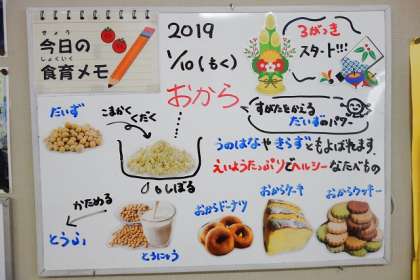 きょう
今日の
しょくいく
食育メモ
2019
1/10(もく)
3がっき
スタート!!!
おから
すがたをかえる
だいずのパワー
うのはなやきらずともよばれます。
えいようたっぷりでヘルシーなたべもの
だいず
こまかく
くだく
しぼる
かためる
とうふ
とうにゅう
おからドーナツ
おからケーキ
おからクッキー